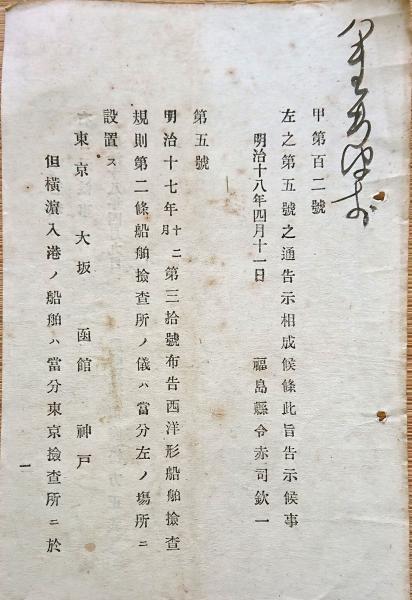 甲第百二號
左之第五號之通告示相成候條此旨告示候事
明治十八年四月十一日
福島縣令赤司欽一
第五號
明治十七年十二月第三拾號布告西洋形船舶撿查
規則第二條船舶撿查所ノ儀ハ當分左ノ場所ニ
設置ス
東京 大坂 函館 神戸
但橫濱入港ノ船舶ハ當分東京撿查所ニ於
一